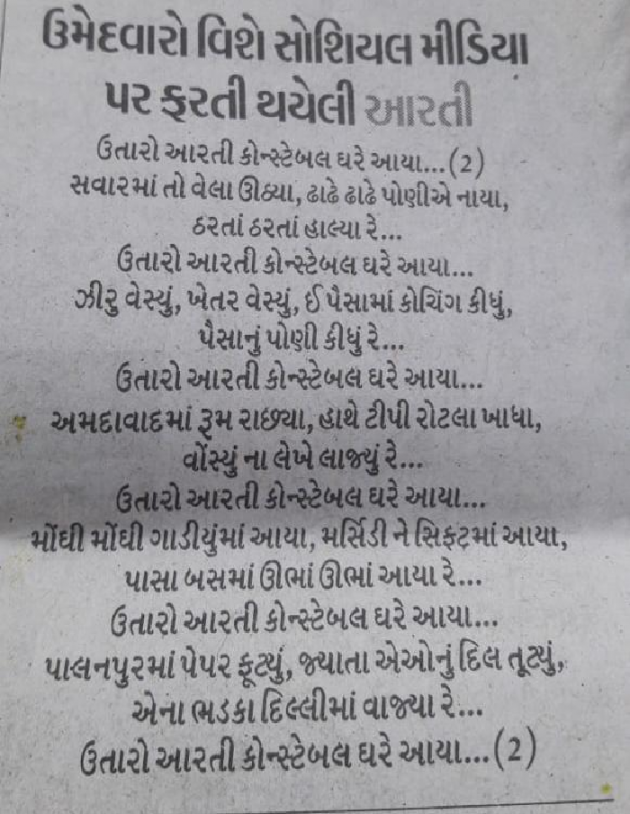 ઉમેદવારો વિશે સોશિયલ મીડિયા
પર ફરતી થયેલી આરતી
ઉતારો આરતી કોન્સ્ટેબલ ઘરે આયા...(2)
સવારમાં તો વેલા ઊઠ્યા, ઢાઢે ઢાઢે પોણીએ નાયા,
ઠરતાં ઠરતાં હાલ્યા રે...
ઉતારો આરતી કોન્સ્ટેબલ ઘરે આયા...
ઝીરુ વેસ્યું, ખેતર વેસ્યું, ઈ પૈસામાં કોચિંગ કીધું,
પૈસાનું પોણી કીધું રે...
ઉતારો આરતી કોન્સ્ટેબલ ઘરે આયા...
અમદાવાદમાં રૂમ રાછ્યા, હાથે ટીપી રોટલા ખાધા,
વોંસ્યું ના લેખે લાજ્યું રે...
ઉતારો આરતી કોન્સ્ટેબલ ઘરે આયા...
મોંઘી મોંઘી ગાડીયુંમાં આયા, મર્સિડી ને સિફ્ટમાં આયા,
પાસા બસમાં ઊભાં ઊભાં આયા રે...
ઉતારો આરતી કોન્સ્ટેબલ ઘરે આયા...
પાલનપુરમાં પેપર ફૂટ્યું, જ્યાતા એઓનું દિલ તૂટ્યું,
એના ભડકા દિલ્લીમાં વાજ્યા રે...
ઉતારો આરતી કોન્સ્ટેબલ ઘરે આયા...(2)